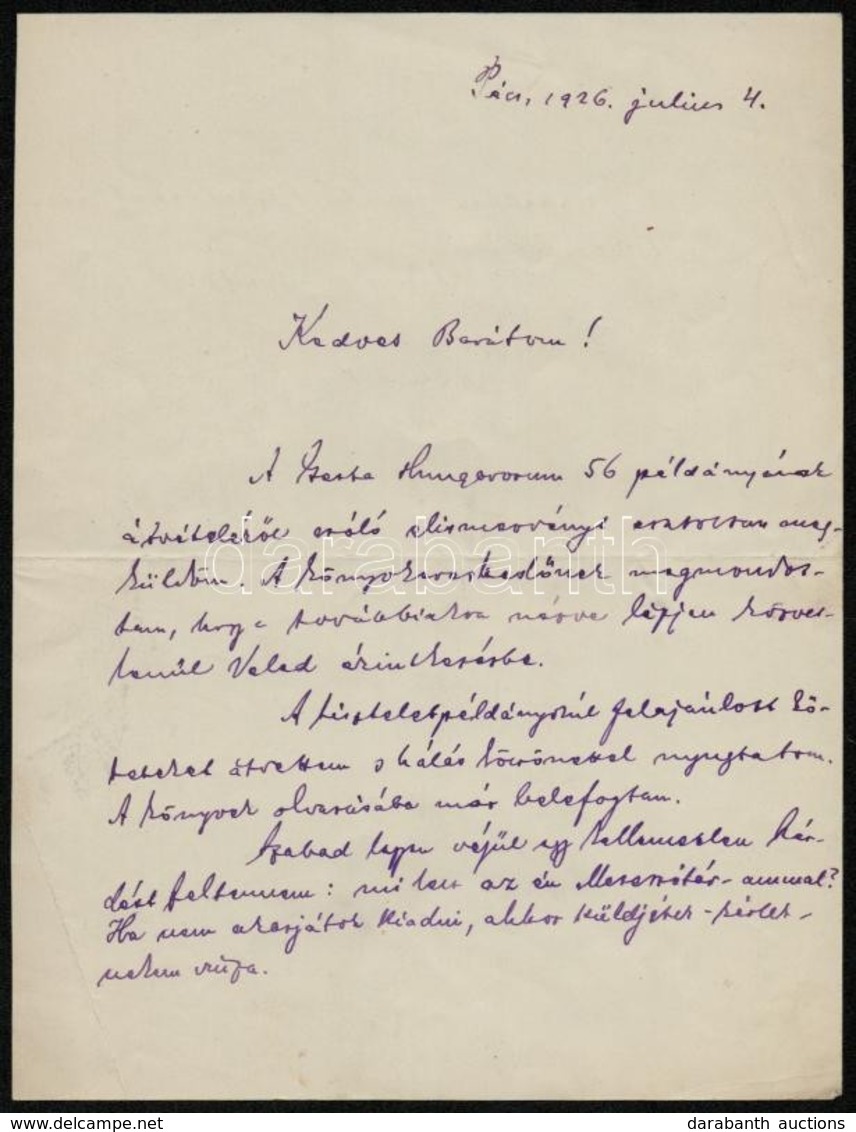 Pécs, 1926. julius 4.
Kedves Barátom!
A Gesta Hungarorum 56 példányának
átvételéről szóló elismervényt csatoltan meg-
küldöm. A könyvkereskedőnek megmondot-
tam, hogy a továbbiakra nézve lépjen közvet-
lenül Veled érintkezésbe.
A tiszteletpéldányokúl felajánlott kö-
teteket átvettem s hálás köszönettel nyugtatom.
A könyvek olvasásába már belefogtam.
Szabad legyen végül egy kellemetlen kér-
dést feltennem: mi lesz az én Meseszótár-ammal?
Ha nem akarjátok kiadni, akkor küldjétek - kérlek -
nekem vissza.
darabanth
www.delcampe.net
darabanth auctions